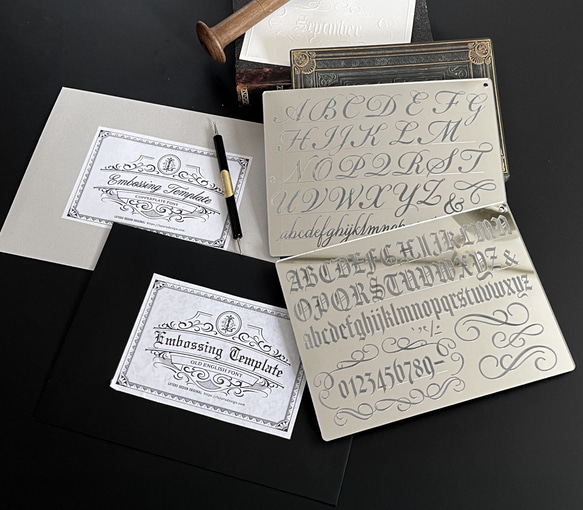 September
A B C D E F G
H I J K L M
N O P Q R S T
U V W X Y Z &
abcdefghijklmnop
Embossing Template
COPPERPLATE FONT
ABCDEFGHIJKLMN
OPQRSTUVWXYZ&
abcdefghijklmnopqrstuvwxyz
0123456789
Embossing Template
OLD ENGLISH FONT